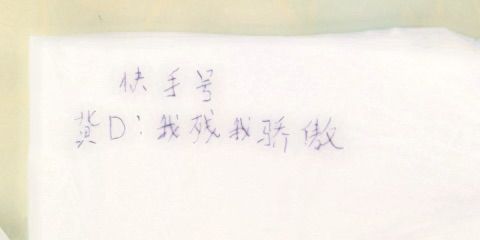 快手号
黄D:我残我骄傲